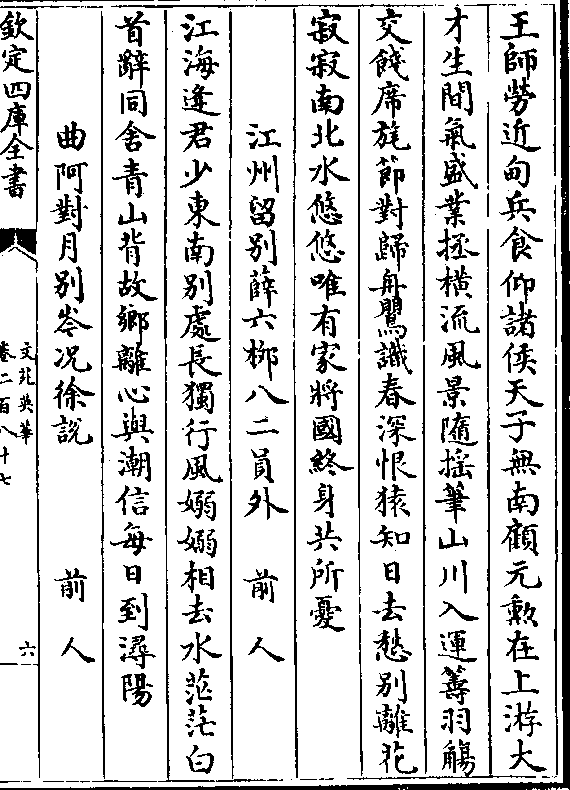 王師勞近甸兵食仰諸侯天子無南顧元勲在上游大
才生間氣盛業拯橫流風景隨揺筆山川入運籌羽觴
交餞席旄節對歸舟鸎識春深恨猿知日去愁别離花
寂寂南北水悠悠唯有家將國終身共所憂
江州留别薛六栁八二員外　前人
江海逢君少東南别處長獨行風嫋嫋相去水茫茫白
首辭同舍青山背故鄉離心與潮信每日到潯陽
曲阿對月别岑况徐説　前人
欽定四庫全書
文苑英華
卷二百八十七
六